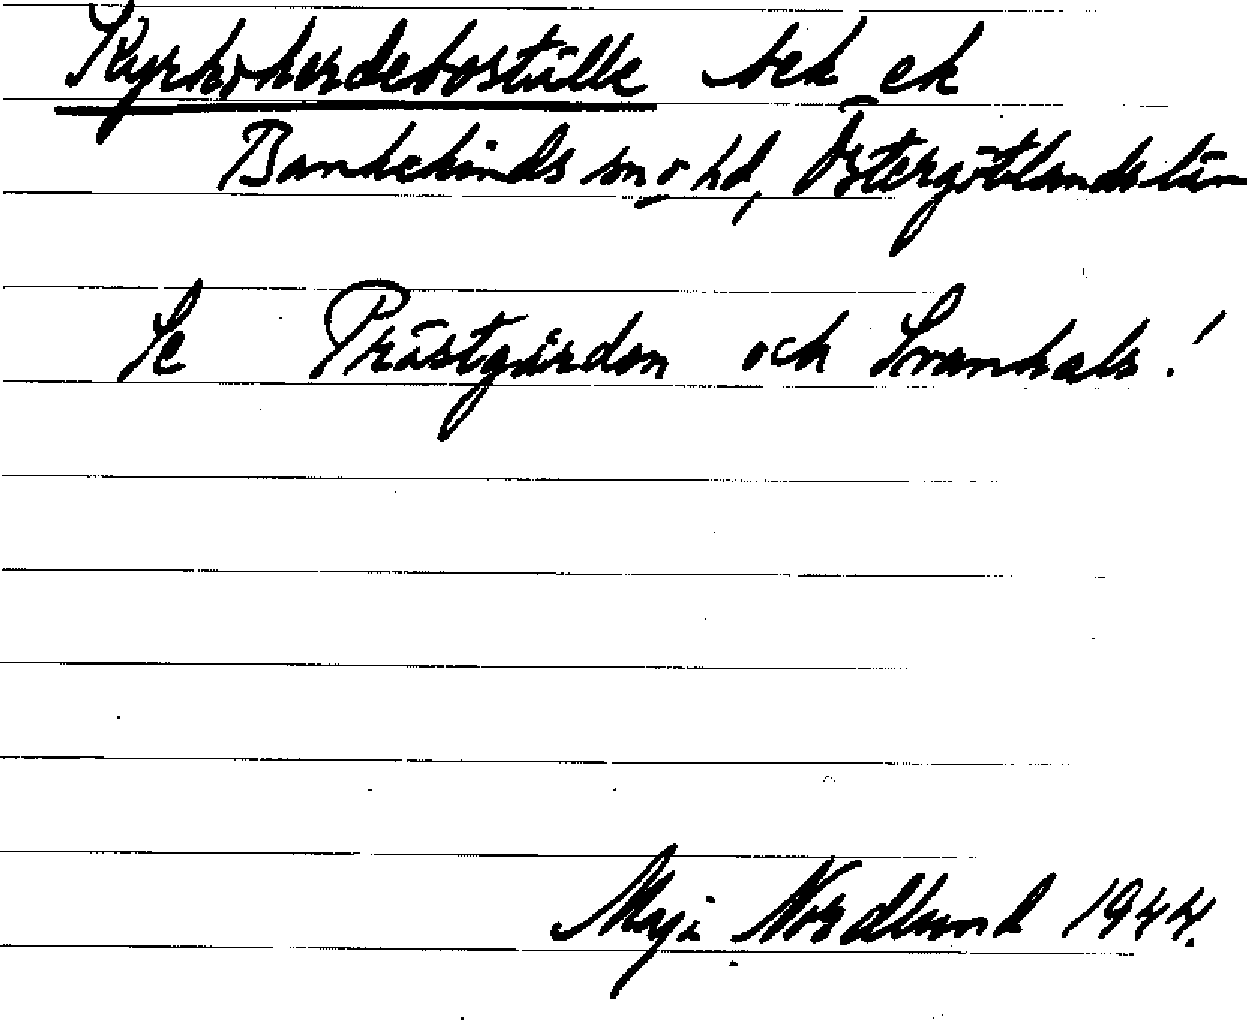 Kyrkoherdeboställe bek ek
Bankekinds sn o hd, Östergötlands län
Se Prästgården och Svanhals!
Maja Nordlund 1944.